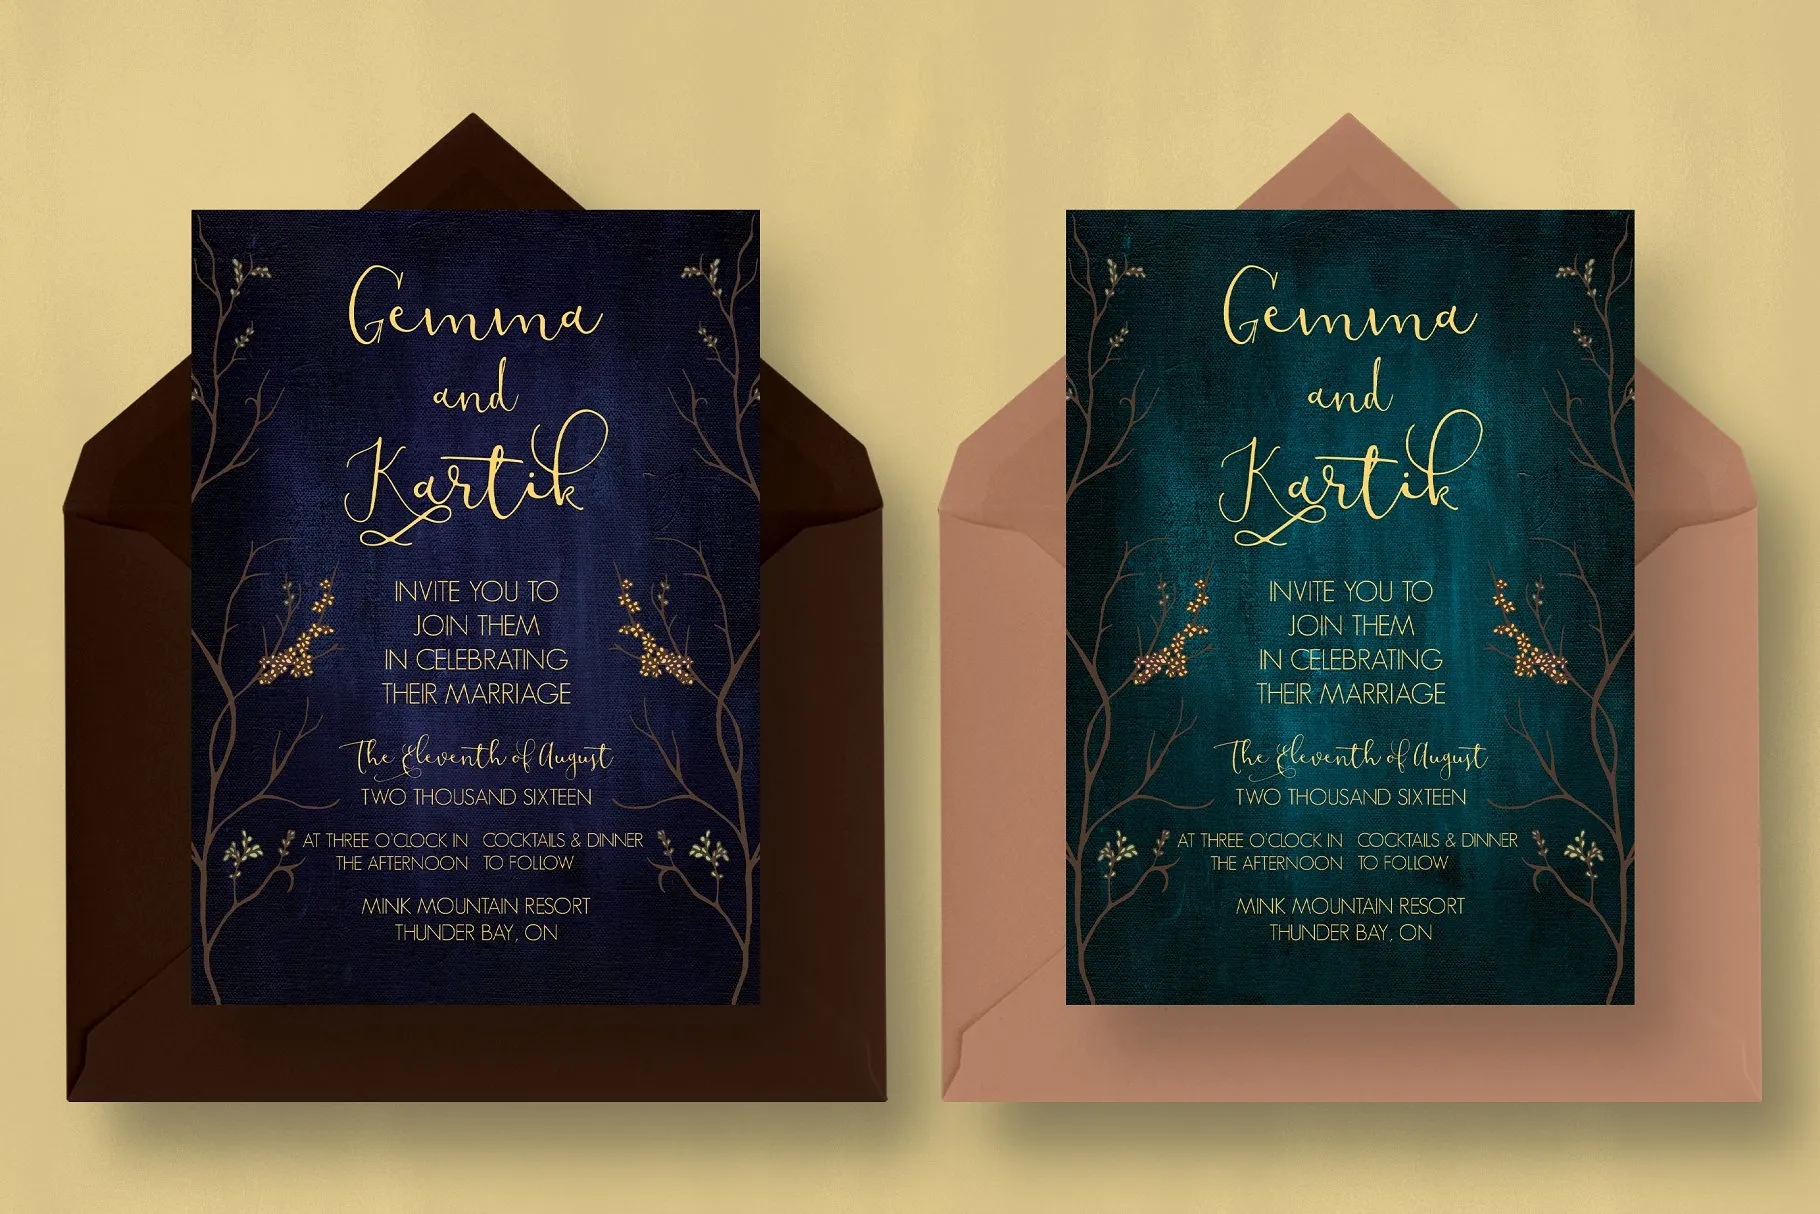 Gemma
and
Kartik
INVITE YOU TO
JOIN THEM
IN CELEBRATING
THEIR MARRIAGE
The Eleventh of August
TWO THOUSAND SIXTEEN
AT THREE O'CLOCK IN
THE AFTERNOON
COCKTAILS & DINNER
TO FOLLOW
MINK MOUNTAIN RESORT
THUNDER BAY, ON
Gemma
and
Kartik
INVITE YOU TO
JOIN THEM
IN CELEBRATING
THEIR MARRIAGE
The Eleventh of August
TWO THOUSAND SIXTEEN
AT THREE O'CLOCK IN
THE AFTERNOON
COCKTAILS & DINNER
TO FOLLOW
MINK MOUNTAIN RESORT
THUNDER BAY, ON